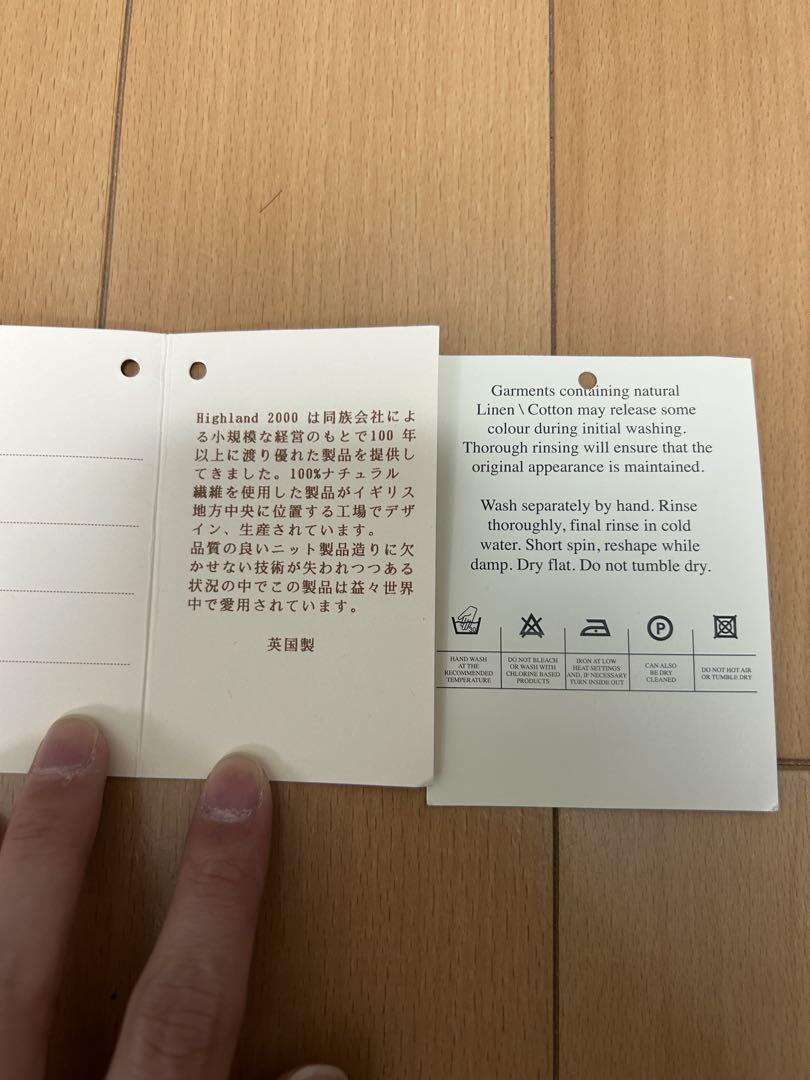 Highland 2000 は同族会社によ
る小規模な経営のもとで100 年
以上に渡り優れた製品を提供し
てきました。100%ナチュラル
繊維を使用した製品がイギリス
地方中央に位置する工場でデザ
イン、生産されています。
品質の良いニット製品造りに欠
かせない技術が失われつつある
状況の中でこの製品は益々世界
中で愛用されています。
英国製
Garments containing natural
Linen \ Cotton may release some
colour during initial washing.
Thorough rinsing will ensure that the
original appearance is maintained.
Wash separately by hand. Rinse
thoroughly, final rinse in cold
water. Short spin, reshape while
damp. Dry flat. Do not tumble dry.
P
HAND WASH
AT THE
RECOMMENDED
TEMPERATURE
DO NOT BLEACH
OR WASH WITH
CHLORINE BASED
PRODUCTS
IRON AT LOW
HEAT SETTINGS
AND, IF NECESSARY
TURN INSIDE OUT
CAN ALSO
BE DRY
CLEANED
DO NOT HOT AIR
OR TUMBLE DRY